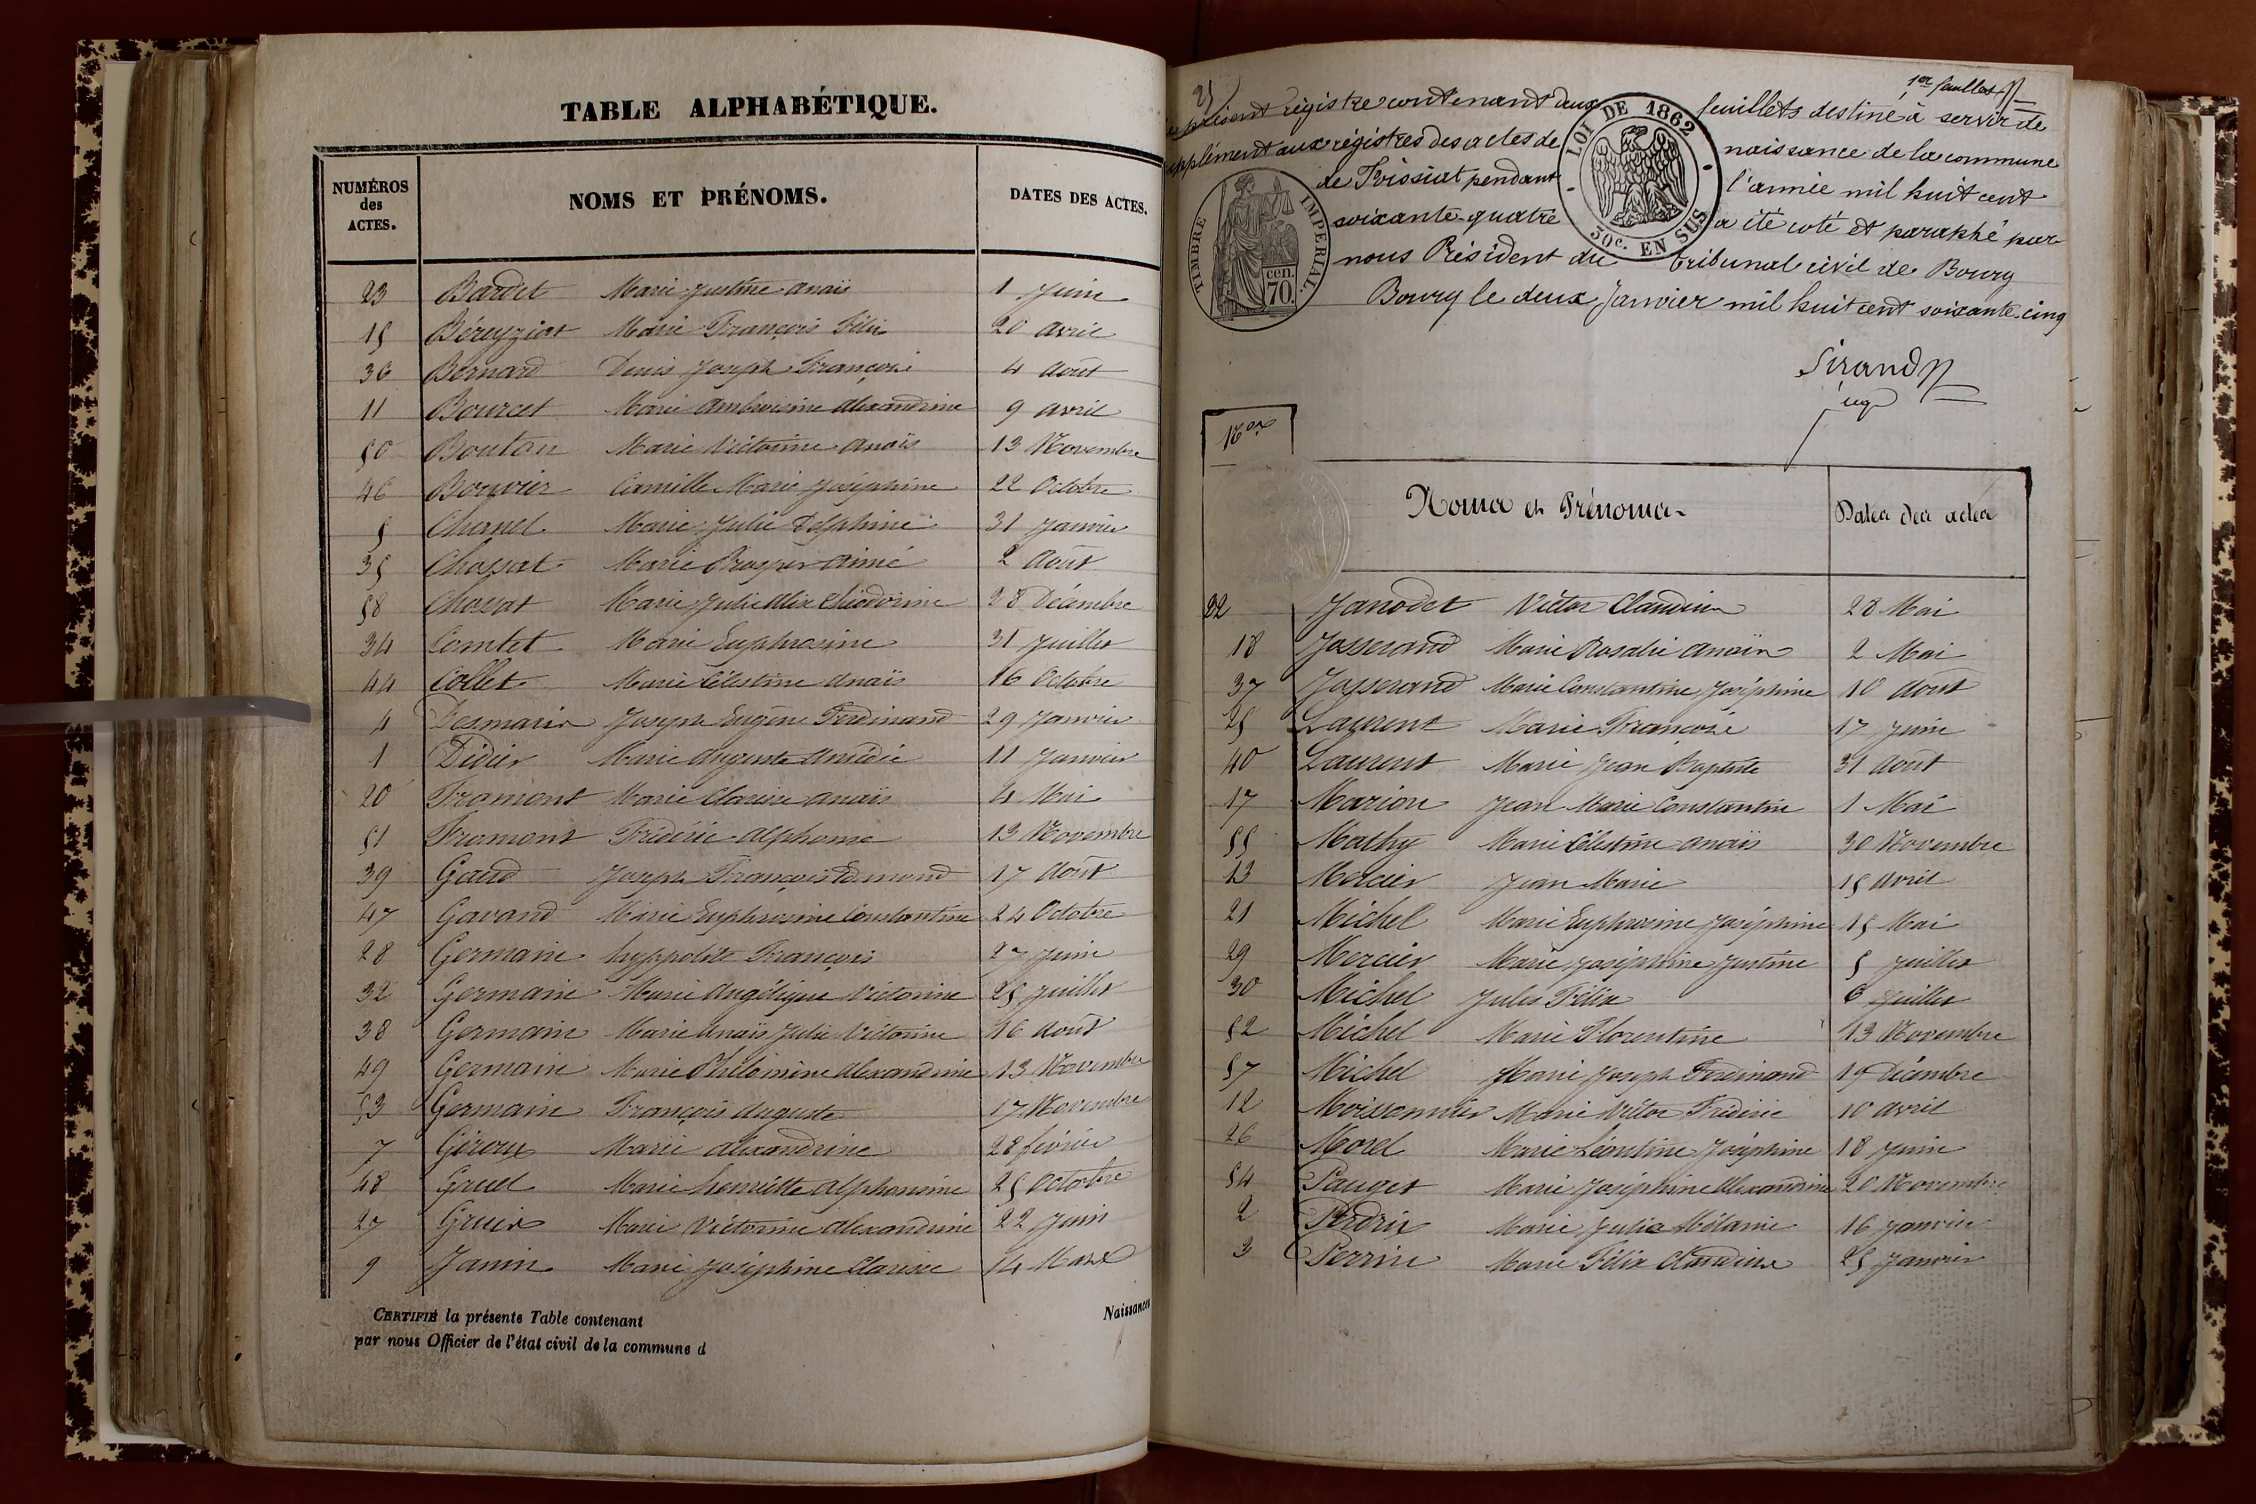 TABLE ALPHABÉTIQUE.
NUMÉROS des ACTES. NOMS ET PRÉNOMS. DATES DES ACTES.
23 Bardet Marie Justine Anaïs 1 Juin
15 Béreyziat Marie François Félix 20 Avril
36 Bernard Denis Joseph François 4 Août
11 Bourcet Marie Ambroisine Alexandrine 9 Avril
50 Bouton Marie Victorine Anaïs 13 Novembre
46 Bouvier Camille Marie Joséphine 22 Octobre
5 Charnel Marie Julie Delphine 31 Janvier
35 Chossat Marie Prosper Aimé 2 Août
58 Chossat Marie Julie Alix Théodorine 28 Décembre
34 Comtet Marie Euphrosine 31 Juillet
44 Collet Marie Célestine Anaïs 16 Octobre
4 Desmaris Joseph Eugène Ferdinand 29 Janvier
1 Didier Marie Auguste Amédée 11 Janvier
20 Fromont Marie Clarisse Anaïs 4 Mai
51 Fromont Frédéric Alphonse 13 Novembre
39 Gaud Joseph François Edmond 17 Août
47 Gavand Marie Euphrosine Constantine 24 Octobre
28 Germain hyppolite François 27 Juin
32 Germain Marie Angélique Victorine 25 Juillet
38 Germain Marie Anaïs Julie Victorine 16 Août
49 Germain Marie Philomine Alexandrine 13 Novembre
53 Germain François Auguste 17 Novembre
7 Giroux Marie Alexandrine 28 février
48 Gruel Marie henriette Alphonsine 25 Octobre
27 Marie Victorine Alexandrine 22 Juin
9 Janin Marie Joséphine Clarisse 14 Mars
CERTIFIÉ la présente Table contenant
par nous Officier de l'état civil de la commune d
Naissances
1er feuillet
présent régistre contenant deux feuillets destiné à servir de
supplément aux régistres des actes de naissance de la commune
de Foissiat pendant l'année mil huit cent
soixante-quatre a été coté et paraphé par
nous Président du tribunal civil de Bourg
Bourg le deux Janvier mil huit cent soixante-cinq
LOI DE 1862
50c. EN SUS
TIMBRE IMPÉRIAL.
cen. 70.
Sirand
juge
Nos
Noms et Prénoms Dates des actes
22 Janodet Victor Claudius 28 Mai
18 Josserand Marie Rosalie Anaïs 2 Mai
37 Josserand Marie Constantine Joséphine 10 Août
25 Laurent Marie Françoise 17 Juin
40 Laurent Marie Jean Baptiste 31 Août
17 Marion Jean Marie Constantin 1 Mai
55 Mathy Marie Célestine Anaïs 30 Novembre
13 Mercier Jean Marie 15 Avril
21 Michel Marie Euphrosine Joséphine 15 Mai
29 Mercier Marie Joséphine Justine 5 Juillet
30 Michel Jules Félix 6 Juillet
52 Michel Marie Florentine 13 Novembre
57 Michel Marie Joseph Ferdinand 19 Décembre
12 Moissonnier Marie Victor Frédéric 10 Avril
26 Morel Marie Léontine Joséphine 18 Juin
54 Pauget Marie Joséphine Alexandrine 20 Novembre
2 Perdrix Marie Julie Mélanie 16 Janvier
3 Perrin Marie Félix Claudius 25 Janvier